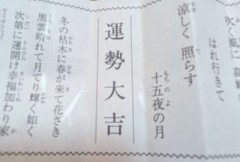 はれ行きて
涼しく 照らす
十五夜の月
もちのよ
運勢大吉
冬の枯木に春が来て花さき
黒雲晴れて月てり輝く如く
次第に運開け幸福加わり家